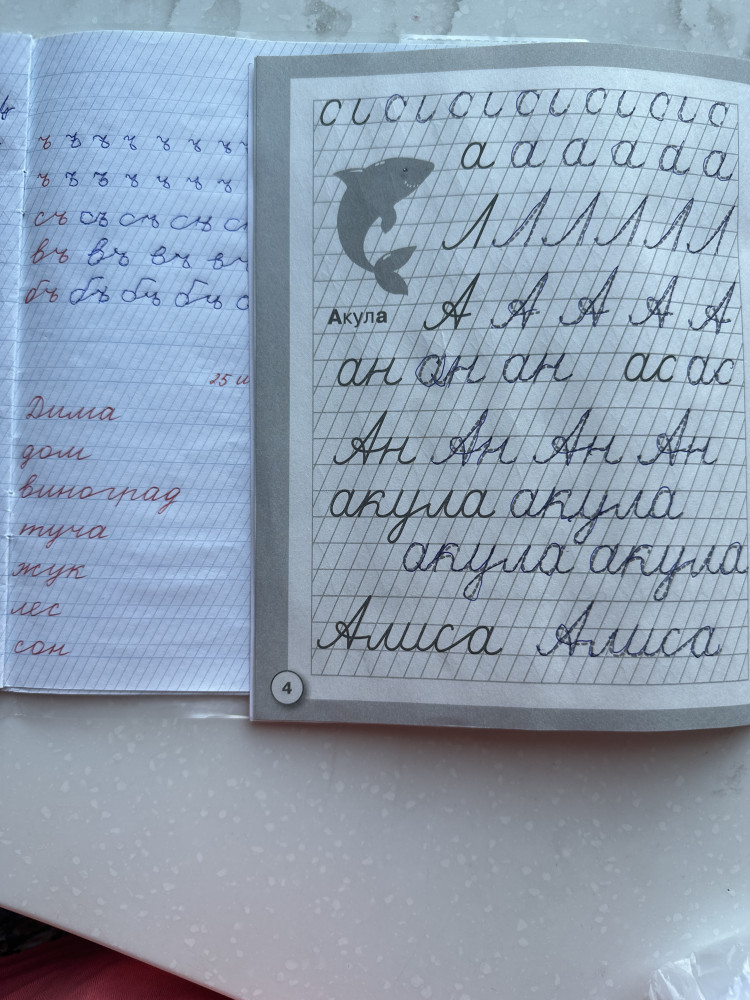 ъ ъ ъ ъ ъ ъ ъ
ъ ъ ъ ъ ъ ъ ъ
съ съ съ съ
въ въ въ въ
бъ бъ бъ бъ
25
Дима
дом
виноград
туча
жук
лес
сон
а а а а а а
Л Л Л Л Л Л
Акула
А А А А А
ан ан ан ас ас
Ан Ан Ан Ан
акула акула
акула акула
Алиса Алиса
4